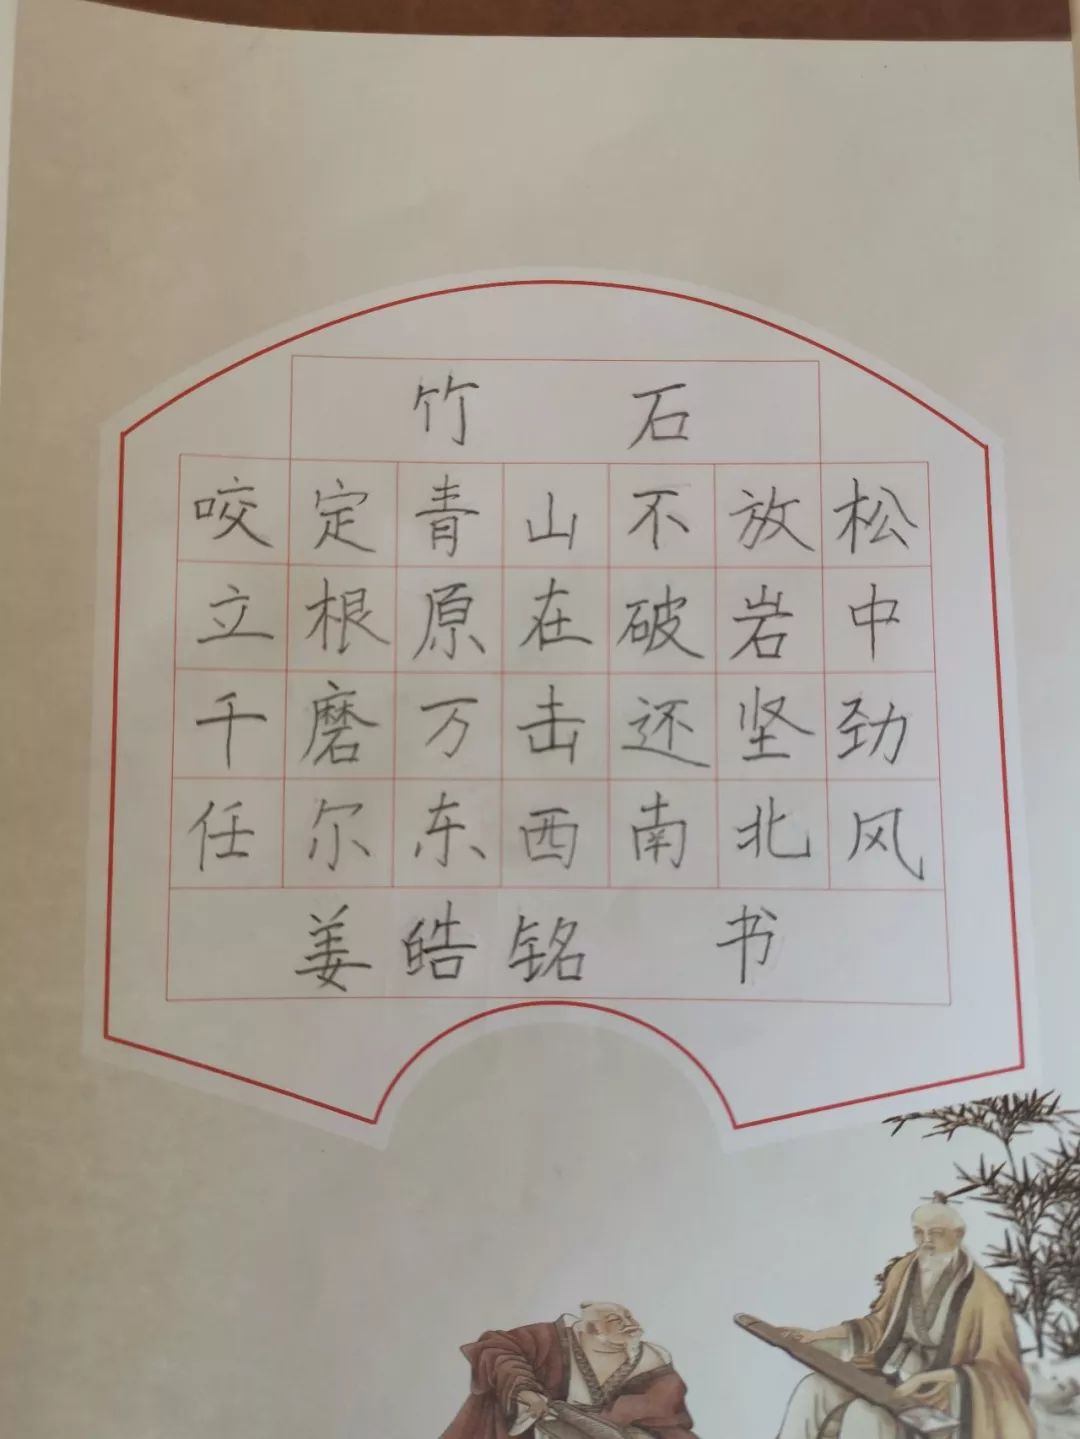 竹 石
咬定青山不放松
立根原在破岩中
千磨万击还坚劲
任尔东西南北风
姜皓铭 书